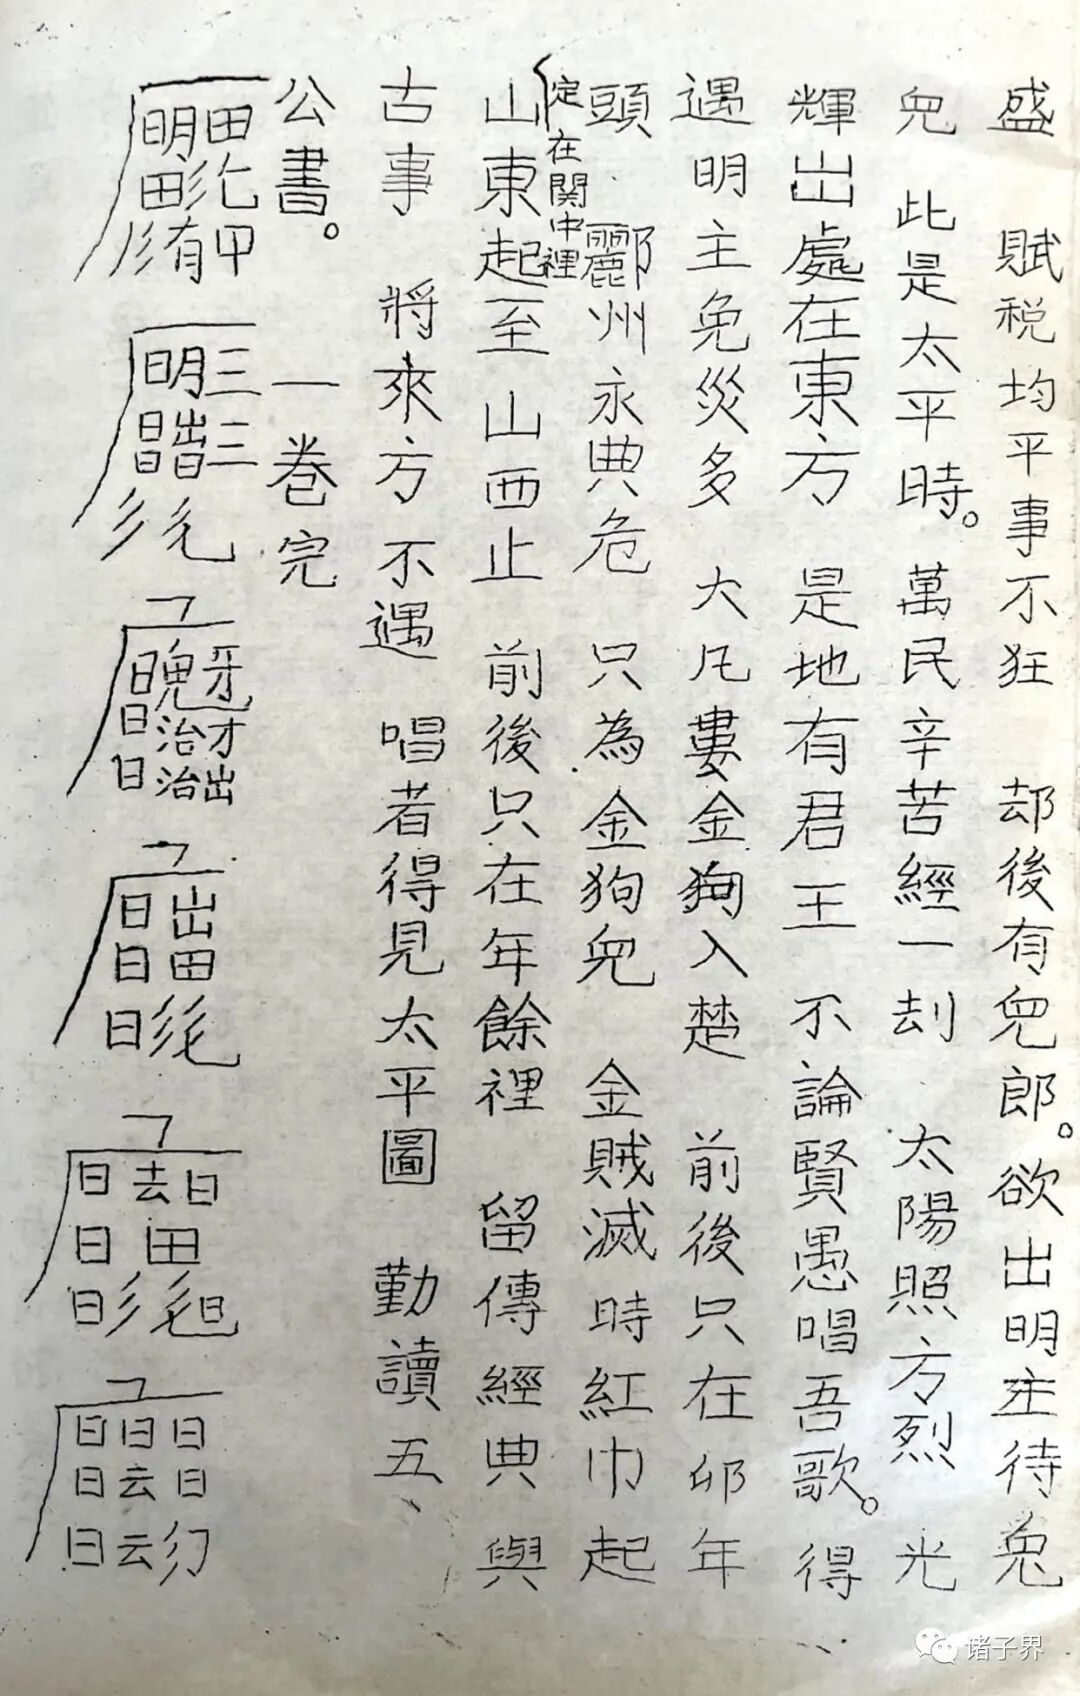 盛　賦税均平事不狂　却後有兜郎。欲出明主待兔
兜　此是太平時。萬民辛苦經一刦　太陽照方烈　光
輝出處在東方　是地有君王　不論賢愚唱吾歌。得
遇明主免災多　大凡婁金狗入楚　前後只在卯年
頭　酈州永典危　只為金狗兜　金賊滅時紅巾起
定在関中裡
山東起至山西止　前後只在年餘裡　留傳經典與
古事　將來方不遇　唱者得見太平圖　勤讀五、
公書。　一卷完
诸子界